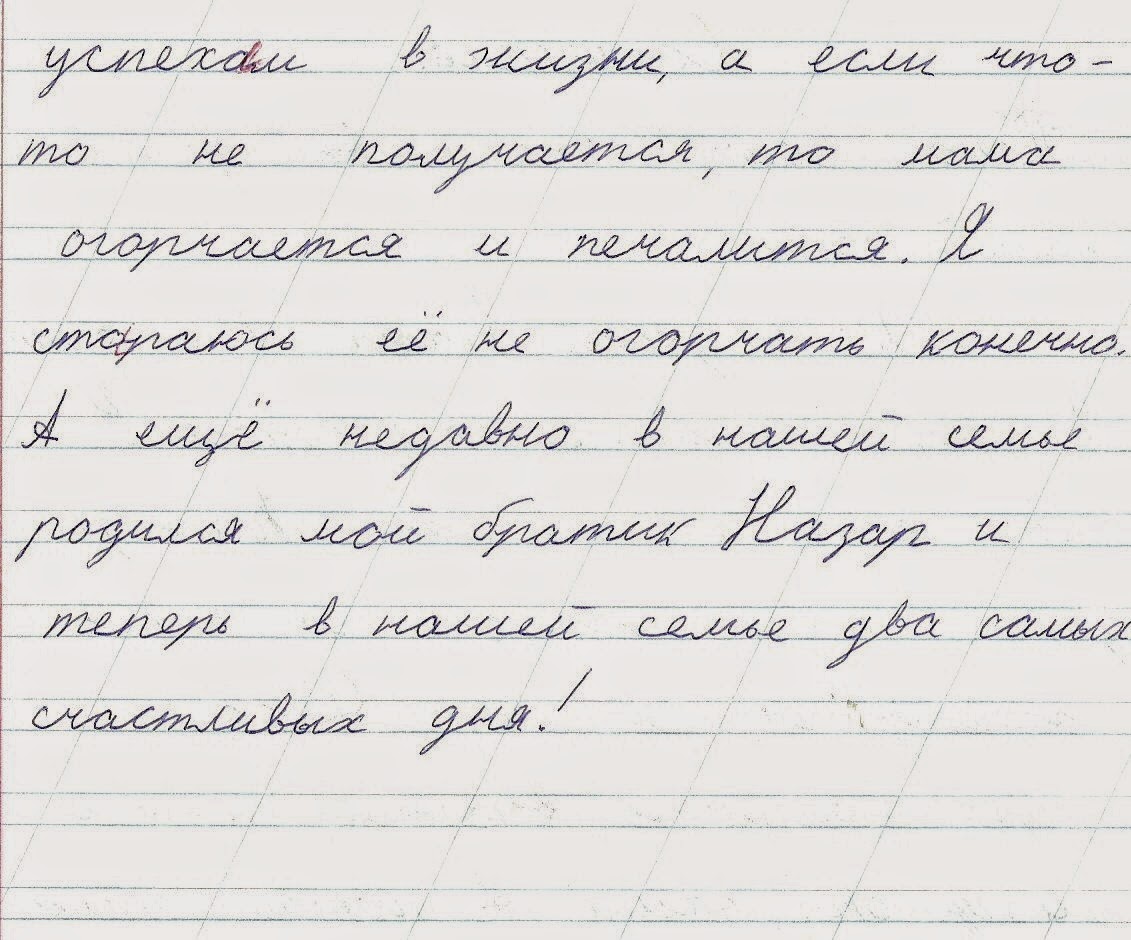 успехам в жизни, а если что-
то не получается, то мама
огорчается и печалится. Я
стараюсь её не огорчать конечно.
А ещё недавно в нашей семье
родился мой братик Назар и
теперь в нашей семье два самых
счастливых дня!